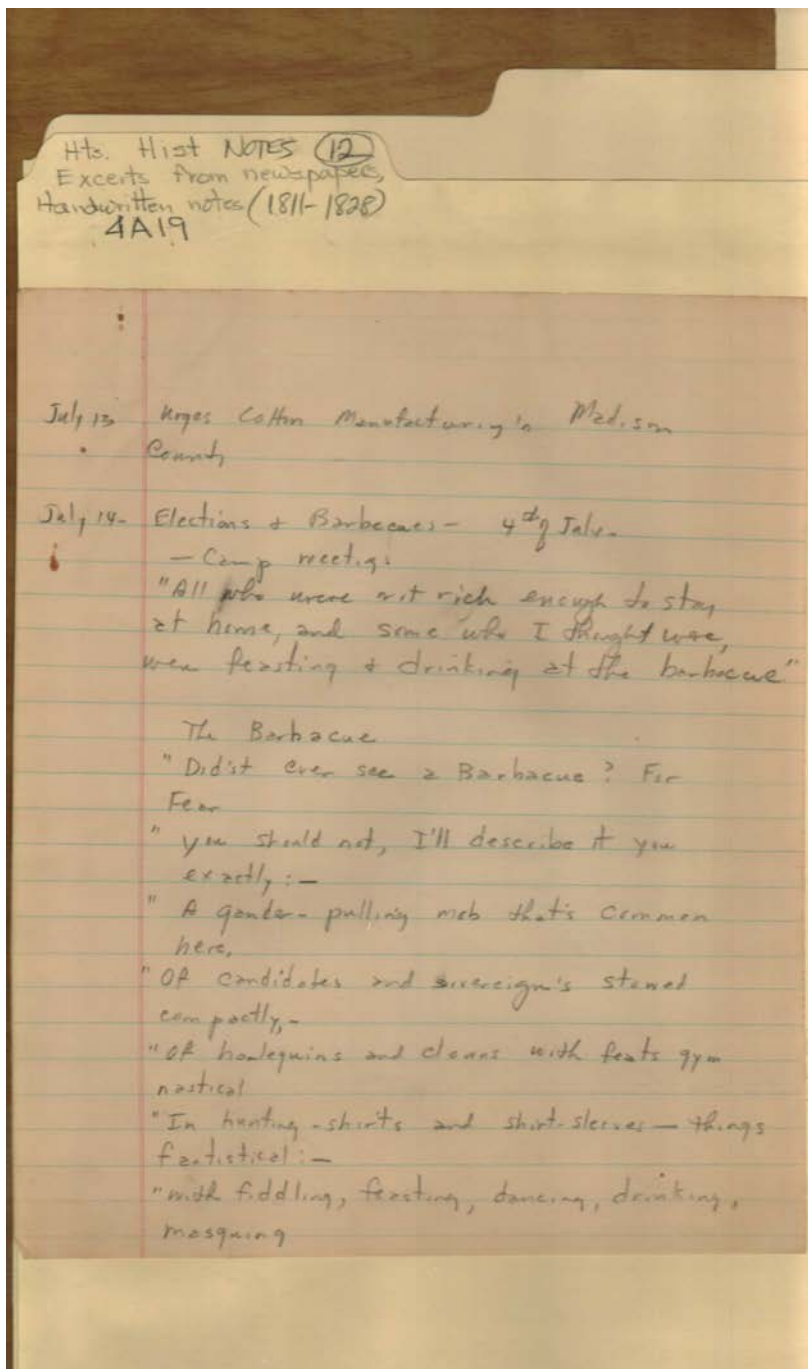 Hts. Hist NOTES (12)
Excerts from newspapers,
Handwritten notes (1811-1828)
4A19
July 13 Urges Cotton Manufacturing in Madison
County
July 14- Elections & Barbecues - 4th of July.
- Camp meetings
"All who were not rich enough to stay
at home, and some who I thought were,
were feasting & drinking at the barbecue"
The Barbacue
"Did'st ever see a Barbacue? For
Fear
" you should not, I'll describe it you
exactly:-
" A gander-pulling mob that's common
here,
"Of candidates and sovereign's stowed
compactly,-
"Of harlequins and clowns with feats gym
nastical
"In hunting-shirts and shirt-sleeves - things
fantistical:-
"with fiddling, feasting, dancing, drinking,
masquing